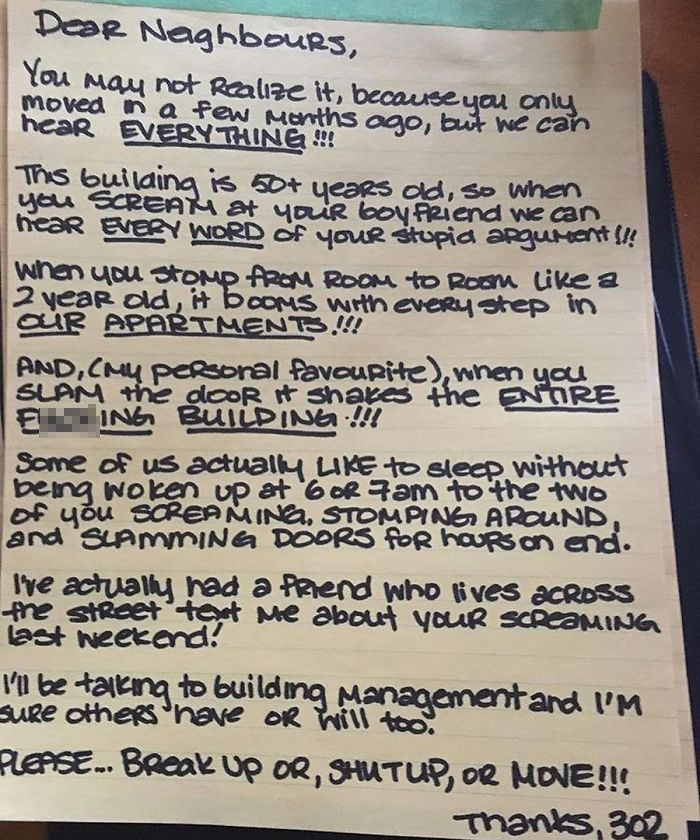 Dear Neighbours,
You may not realize it, because you only
moved in a few months ago, but we can
hear EVERYTHING!!!
This building is 50+ years old, so when
you SCREAM at your boyfriend we can
hear EVERY WORD of your stupid argument!!!
When you stomp from room to room like a
2 year old, it booms with every step in
OUR APARTMENTS!!!
AND, (my personal favourite), when you
SLAM the door it shakes the ENTIRE
F ING BUILDING!!!
Some of us actually LIKE to sleep without
being woken up at 6 or 7am to the two
of you SCREAMING, STOMPING AROUND,
and SLAMMING DOORS for hours on end.
I've actually had a friend who lives across
the street text me about your SCREAMING
last weekend!
I'll be talking to building management and I'm
sure others have or will too.
PLEASE... Break up or, SHUT UP, or MOVE!!!
Thanks, 302